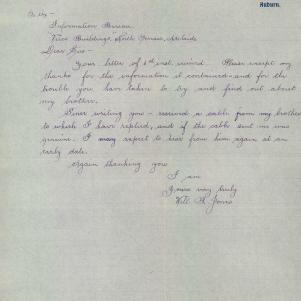 Auburn.
To the -
Information Bureau
Verco Buildings, North Terrace, Adelaide
Dear Sir -
Your letter of 1st inst received. Please accept my
thanks for the information it contained - and for the
trouble you have taken to try and find out about
my brother.
Since writing you - received a cable from my brother
to which I have replied, and if the cable sent me was
genuine I may expect to hear from him again at an
early date.
Again thanking you
I am
Yours very truly
Will. H. Jones